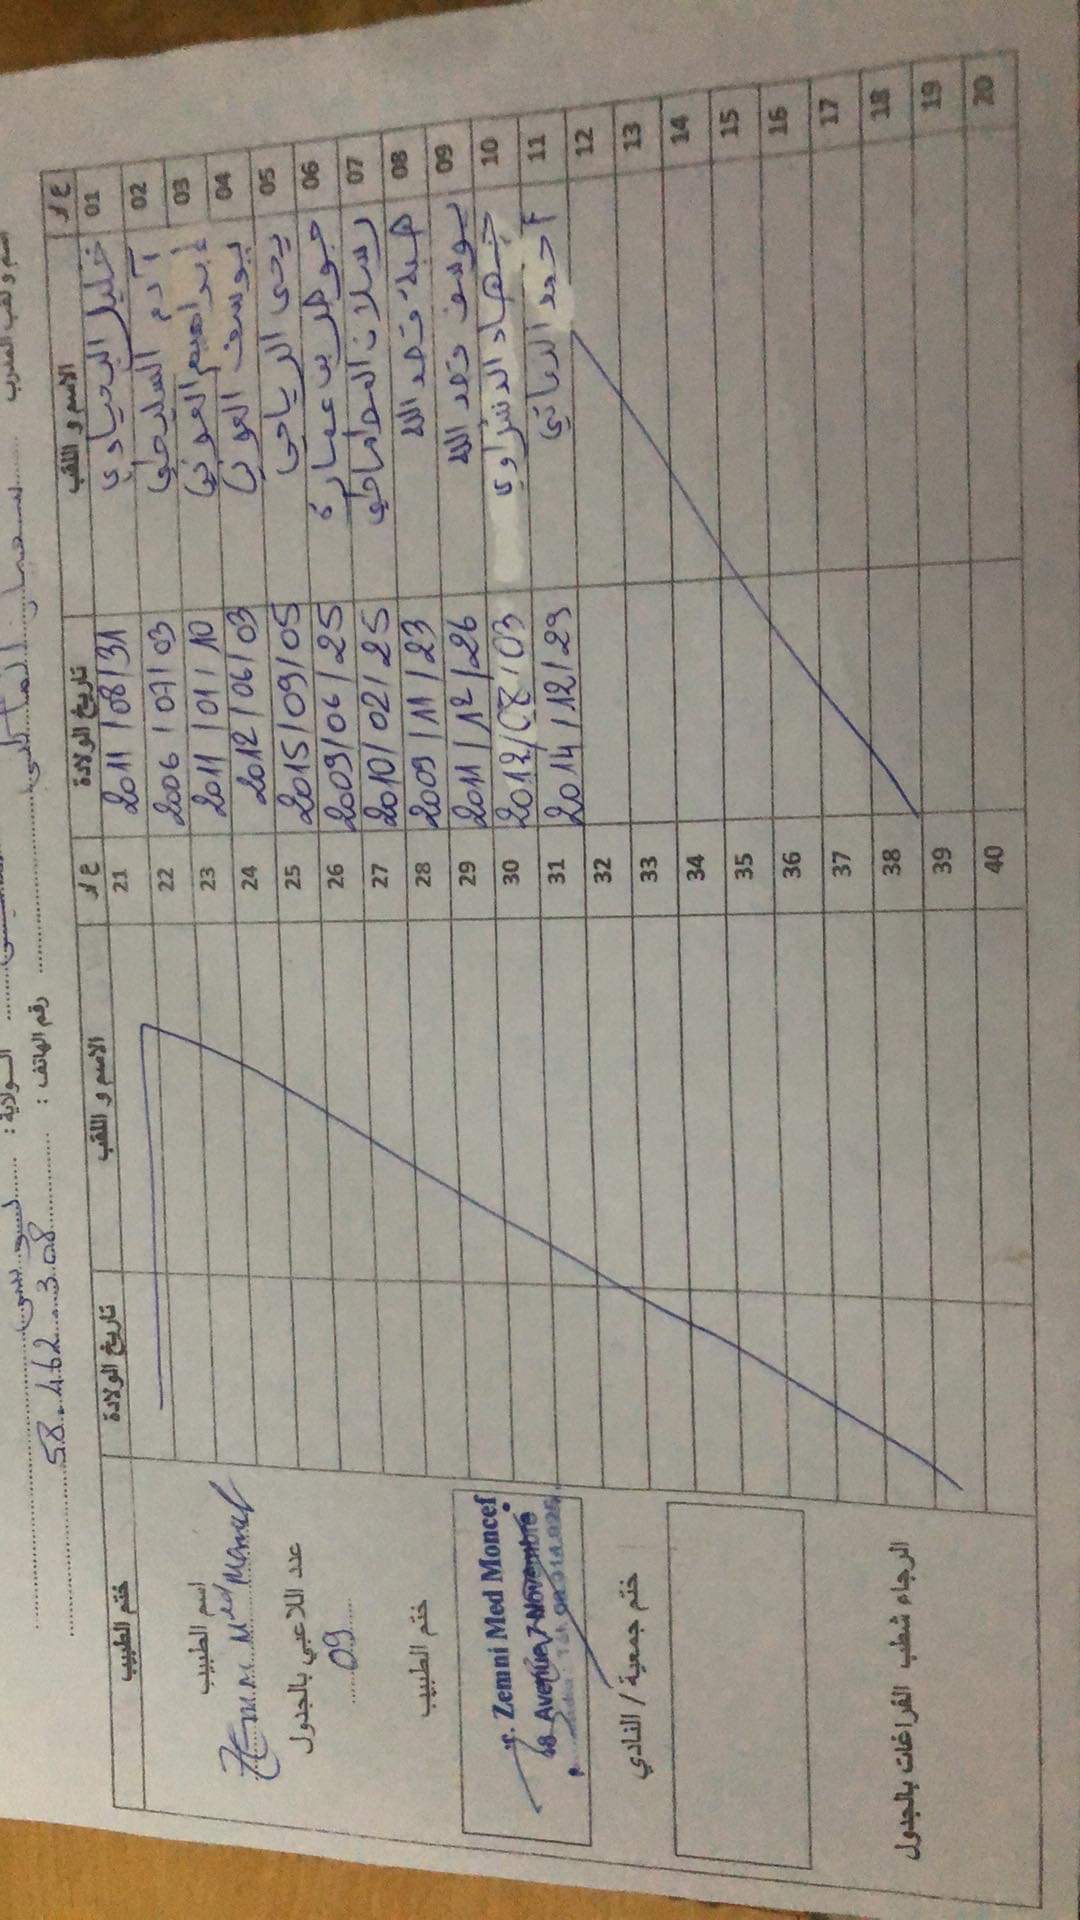 اسم و لقب المدرب
رقم الهاتف : 58.462.308
ع/ر الاسم و اللقب تاريخ الولادة ع/ر الاسم و اللقب تاريخ الولادة ختم الطبيب
01 خليل العيادي 2011/08/31 21
02 آدم السليطي 2006/07/03 22
03 إبراهيم العوني 2011/01/10 23
04 يوسف العوني 2012/06/03 24
05 يحي الرياحي 2015/09/05 25
06 جوهر بن عمارة 2009/06/25 26
07 رسلان 2010/02/25 27
08 هبة فتح الله 2009/11/23 28
09 يوسف فتح الله 2011/12/26 29
10 جهاد 2012/08/03 30
11 أحمد 2014/12/29 31
12 32
13 33
14 34
15 35
16 36
17 37
18 38
19 39
20 40
اسم الطبيب
عدد اللاعبي بالجدول
09
ختم الطبيب
Dr. Zemni Med Moncef
68 Avenue 7 Novembre
ختم جمعية / النادي
الرجاء شطب الفراغات بالجدول